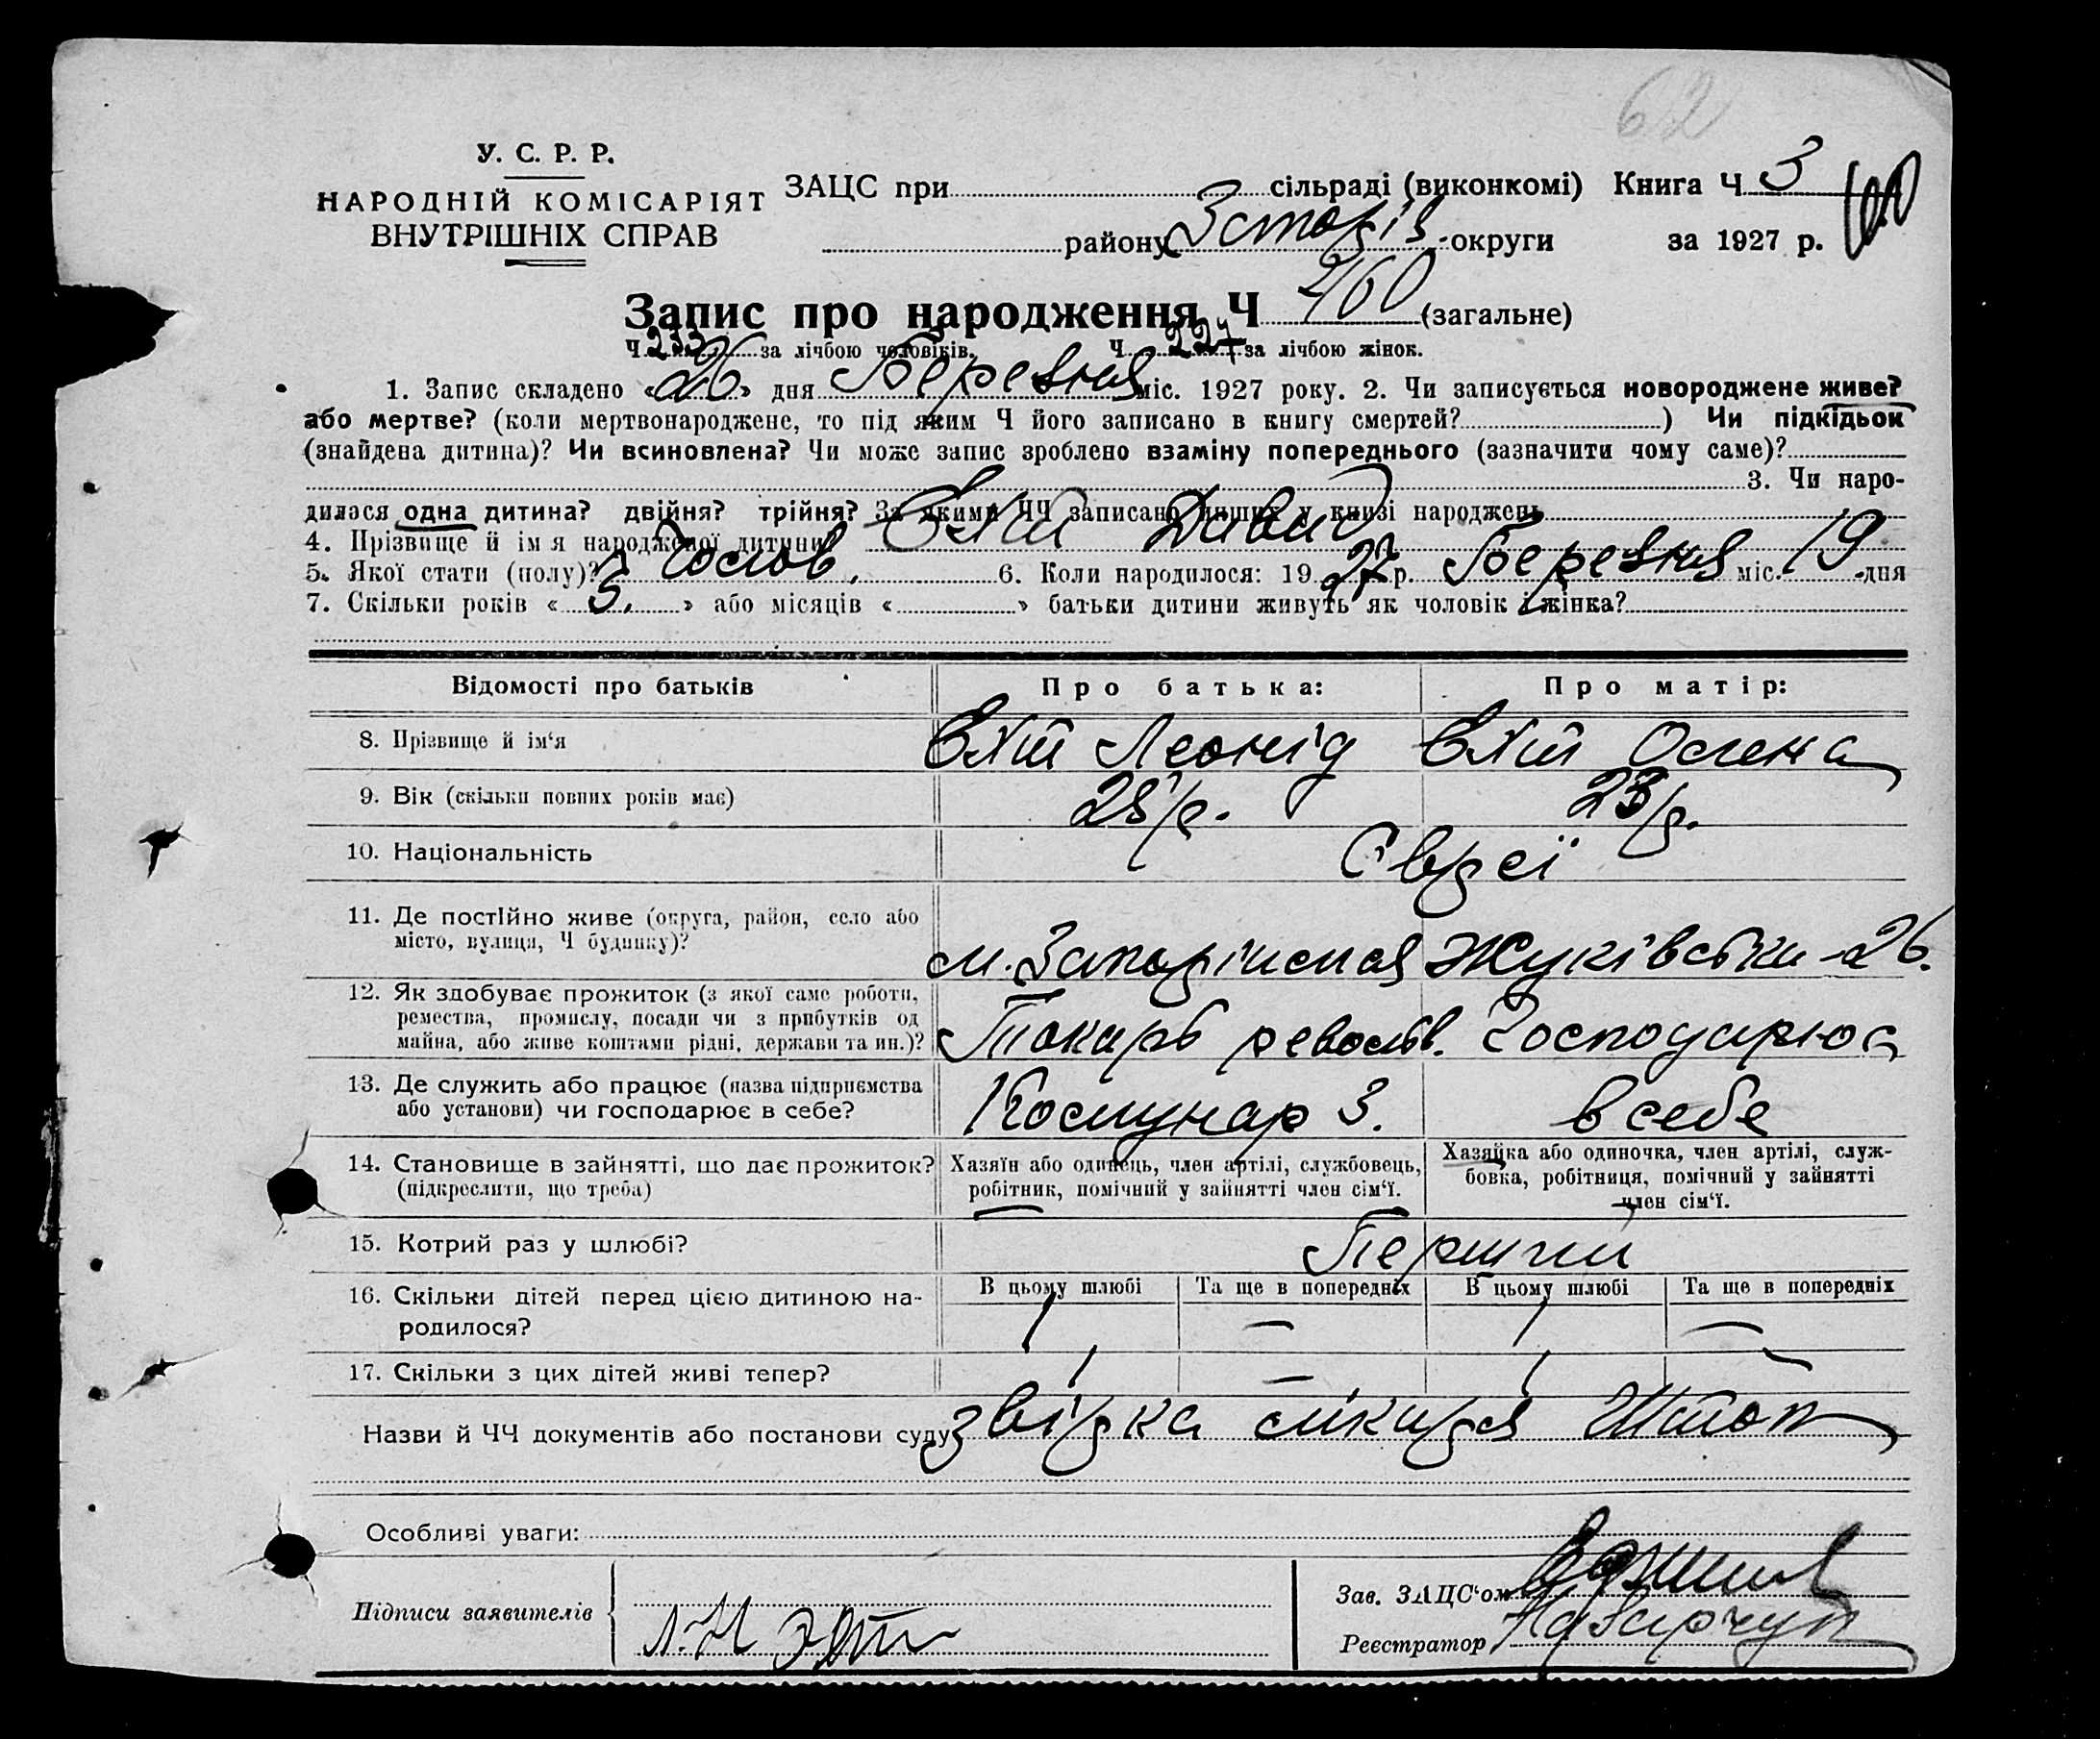 62
У. С. Р. Р.
НАРОДНІЙ КОМІСАРІЯТ
ВНУТРІШНІХ СПРАВ
ЗАЦС при сільраді (виконкомі) Книга Ч 3
району Запоріз. округи за 1927 р.
Запис про народження Ч 460 (загальне)
Ч 233 за лічбою чоловіків. Ч 227 за лічбою жінок.
1. Запис складено «26» дня Березня міс. 1927 року. 2. Чи записується новороджене живе?
або мертве? (коли мертвонароджене, то під яким Ч його записано в книгу смертей? ) Чи підкідьок
(знайдена дитина)? Чи всиновлена? Чи може запис зроблено взаміну попереднього (зазначити чому саме)?
3. Чи наро-
дилася одна дитина? двійня? трійня? За якими ЧЧ записано инших у книзі народжень
4. Прізвище й ім'я народженої дитини? Давид
5. Якої стати (полу)? Чолов. 6. Коли народилося: 1927 р. Березня міс. 19 дня
7. Скільки років «3.» або місяців « » батьки дитини живуть як чоловік і жінка?
Відомості про батьків
Про батька:
Про матір:
8. Прізвище й ім'я
Леонід
Олена
9. Вік (скільки повних років має)
28/р.
23/р.
10. Національність
Євреї
11. Де постійно живе (округа, район, село або
місто, вулиця, Ч будинку)?
м. Запоріжжя Жуківська 26.
12. Як здобуває прожиток (з якої саме роботи,
ремества, промислу, посади чи з прибутків од
майна, або живе коштами рідні, держави та ин.)?
Токарь револьв.
Господарює
13. Де служить або працює (назва підприємства
або установи) чи господарює в себе?
Комунар З.
в себе
14. Становище в зайнятті, що дає прожиток?
(підкреслити, що треба)
Хазяїн або одинець, член артілі, службовець,
робітник, помічний у зайнятті член сім'ї.
Хазяйка або одиночка, член артілі, служ-
бовка, робітниця, помічний у зайнятті
член сім'ї.
15. Котрий раз у шлюбі?
Перший
16. Скільки дітей перед цією дитиною на-
родилося?
В цьому шлюбі
Та ще в попередніх
В цьому шлюбі
Та ще в попередніх
1 — 1 —
17. Скільки з цих дітей живі тепер?
1 — 1 —
Назви й ЧЧ документів або постанови суду звідка лікаря
Особливі уваги:
Підписи заявителів
Зав. ЗАЦС'ом
Реєстратор Назарчук